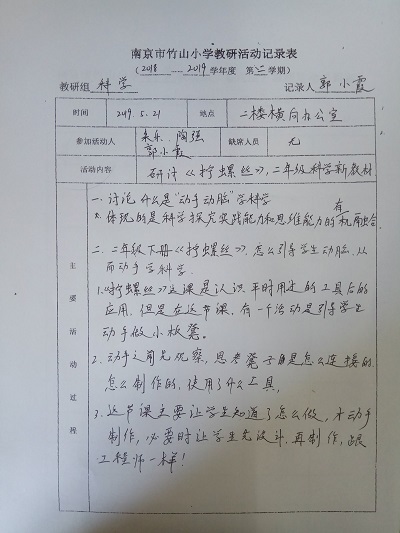 南京市竹山小学教研活动记录表
（2018——2019学年度 第二学期）
教研组 科学 记录人 郭小霞
时间 2019.5.21 地点 二楼横向办公室
参加活动人 朱乐、陶强 郭小霞 缺席人员 无
活动内容 研讨《拧螺丝》，二年级科学新教材
主要活动过程
一、讨论什么是“动手动脑”学科学
体现的是科学探究实践能力和思维能力的有机融合
二、二年级下册《拧螺丝》，怎么引导学生动脑，从
而动手学科学.
1.《拧螺丝》这课是认识平时用过的工具后的
应用，但是在这节课，有一个活动是引导学生
动手做小板凳。
2、动手之前先观察，思考凳子自是怎么连接的
怎么制作的，使用了什么工具，
3、这节课主要让学生知道了怎么做，才动手
制作，必要时让学生先设计，再制作，跟
工程师一样！